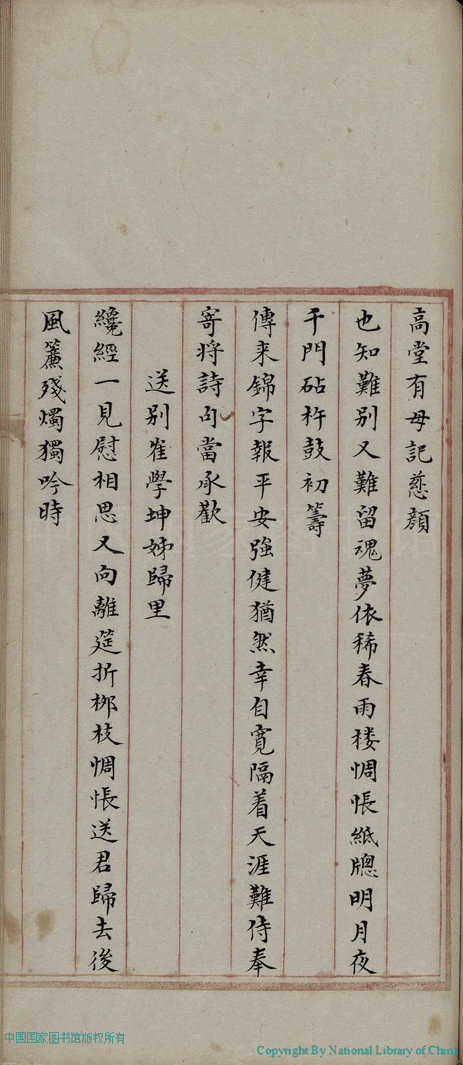 高堂有母記慈顔
也知難別又難留魂夢依稀春雨楼惆悵紙牕明月夜
千門砧杵鼓初籌
傳来錦字報平安強健猶然幸自寛隔着天涯難侍奉
寄将詩句當承歡
送別崔學坤姊歸里
纔經一見慰相思又向離筵折桺枝惆悵送君歸去後
風簾殘燭獨吟時
中国国家图书馆版权所有
Copyright By National Library of China